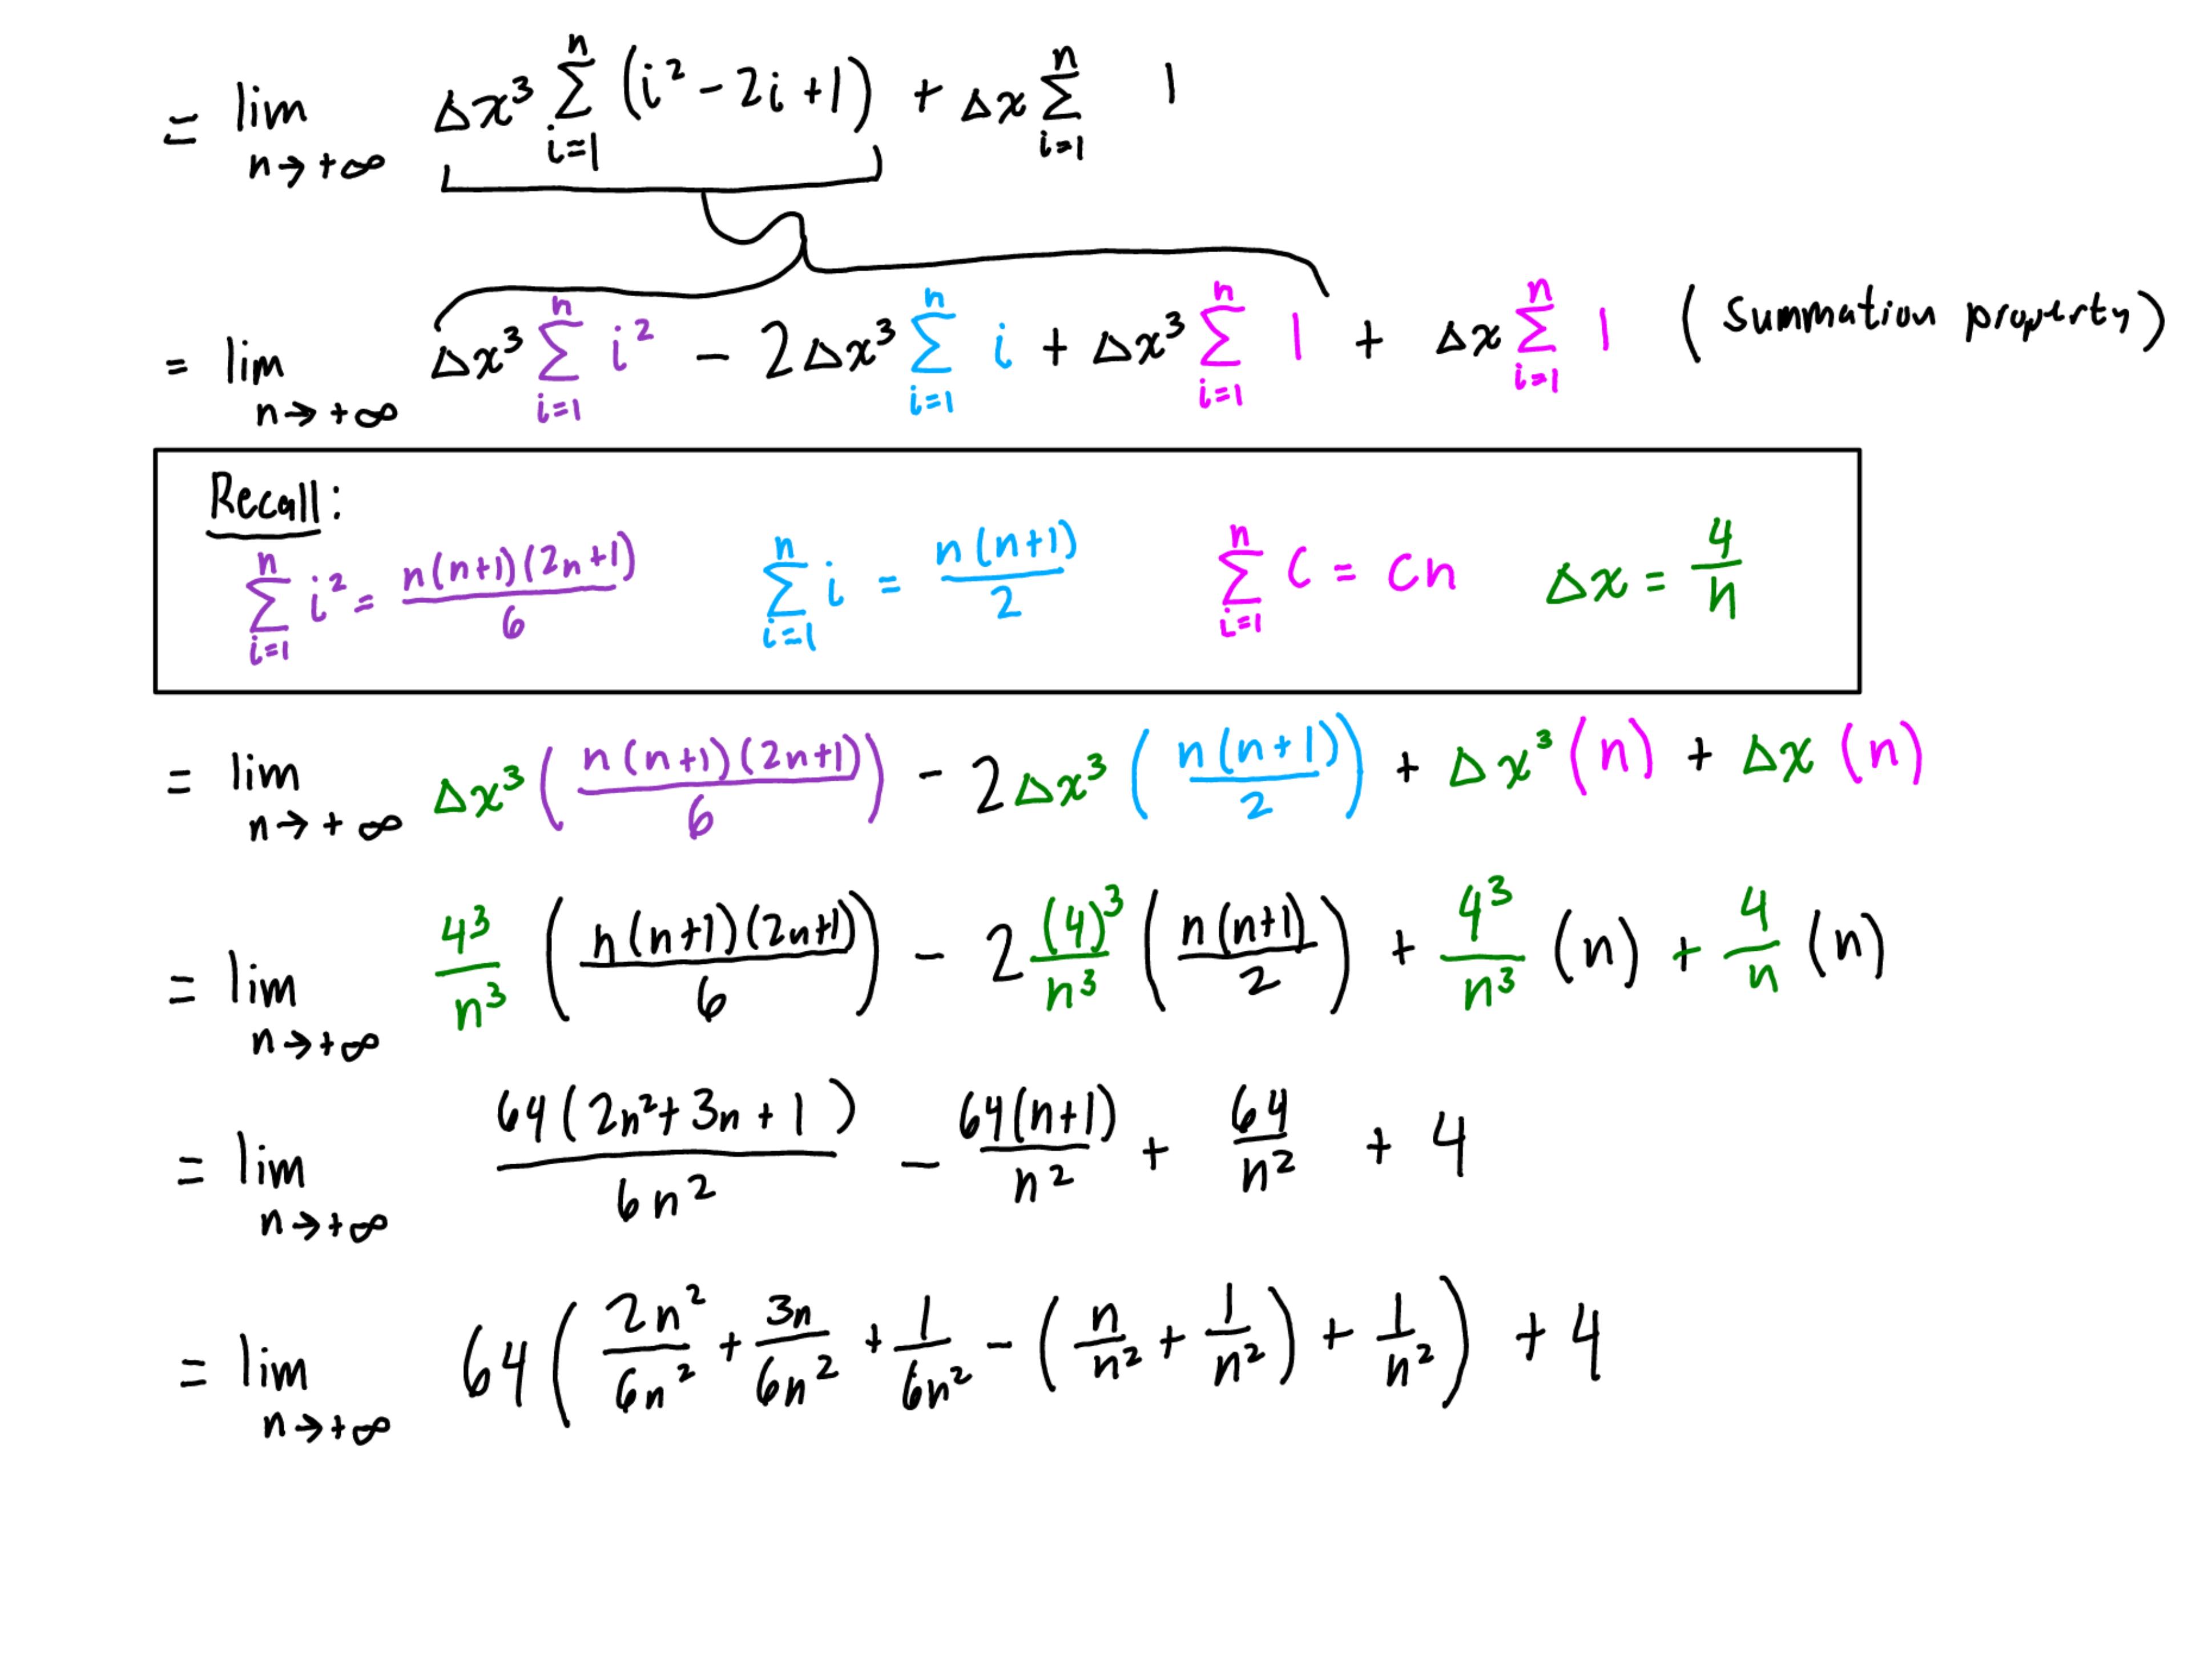 = lim n→+∞ Δx³ Σ i=1 n (i² - 2i + 1) + Δx Σ i=1 n 1
= lim n→+∞ Δx³ Σ i=1 n i² - 2Δx³ Σ i=1 n i + Δx³ Σ i=1 n 1 + Δx Σ i=1 n 1 (summation property)
Recall:
Σ i=1 n i² = n(n+1)(2n+1)/6 Σ i=1 n i = n(n+1)/2 Σ i=1 n C = cn Δx = 4/n
= lim n→+∞ Δx³ (n(n+1)(2n+1)/6) - 2Δx³ (n(n+1)/2) + Δx³ (n) + Δx (n)
= lim n→+∞ 4³/n³ (n(n+1)(2n+1)/6) - 2 (4)³/n³ (n(n+1)/2) + 4³/n³ (n) + 4/n (n)
= lim n→+∞ 64(2n²+3n+1)/6n² - 64(n+1)/n² + 64/n² + 4
= lim n→+∞ 64(2n²/6n² + 3n/6n² + 1/6n² - (n/n² + 1/n²) + 1/n²) + 4